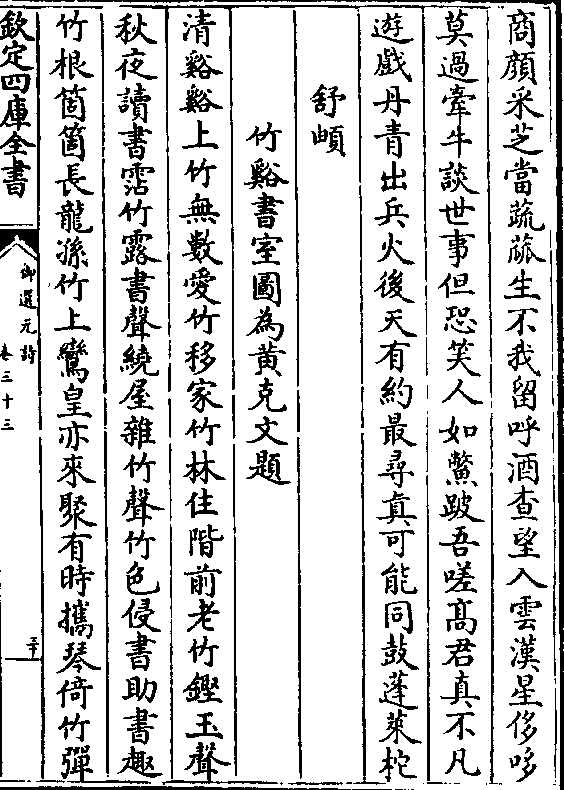 商顔采芝當蔬蓏生不我留呼酒查望入雲漢星侈哆
莫過牽牛談世事但恐笑人如鱉跛吾嗟髙君真不凡
遊戲丹青出兵火後天有約最尋真可能同鼓蓬萊柁
舒頔
竹谿書室圖為黄克文題
清谿谿上竹無數愛竹移家竹林住階前老竹鏗玉聲
秋夜讀書霑竹露書聲繞屋雜竹聲竹色侵書助書趣
竹根箇箇長龍孫竹上鸞皇亦來聚有時攜琴倚竹彈
欽定四庫全書
御選元詩
卷三十三
三十